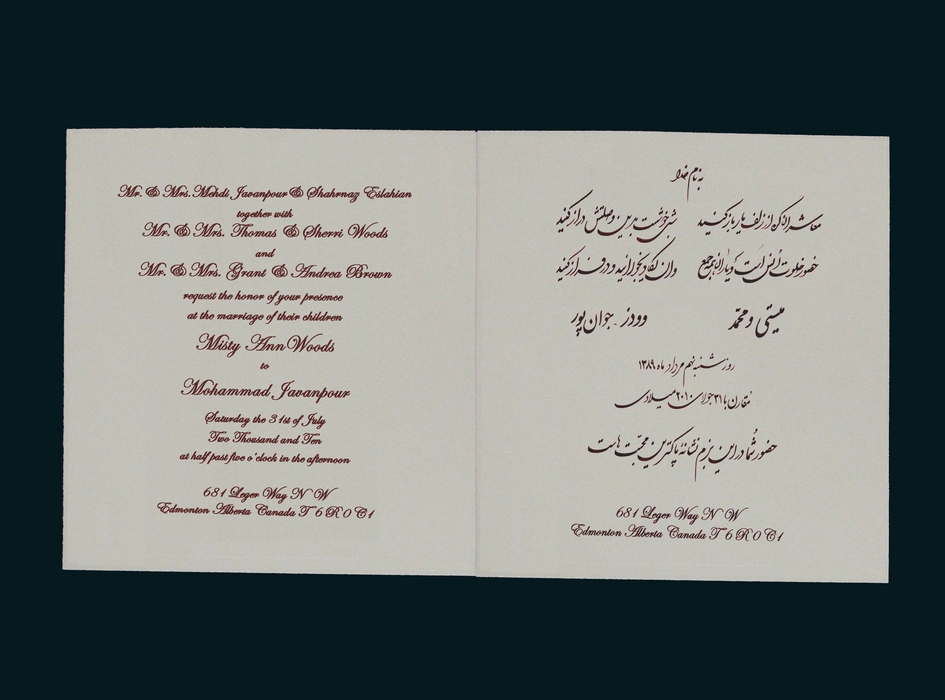 Mr. & Mrs. Mehdi Javanpour & Shahrnaz Eslahian
together with
Mr. & Mrs. Thomas & Sherri Woods
and
Mr. & Mrs. Grant & Andrea Brown
request the honor of your presence
at the marriage of their children
Misty Ann Woods
to
Mohammad Javanpour
Saturday the 31st of July
Two Thousand and Ten
at half past five o'clock in the afternoon
681 Leger Way N W
Edmonton Alberta Canada T 6 R 0 C1
به نام خدا
معاشران گره از زلف یار باز کنید شبی خوشست بدین وصلتش دراز کنید
حضور خلوت انس است و یاران جمع وان یکاد بخوانید و در فراز کنید
میستی و محمد وودز . جوان پور
روز شنبه نهم مرداد ماه ۱۳۸۹
مقارن با ۳۱ جولای ۲۰۱۰ میلادی
حضور شما در این بزم نشانه پاکترین محبت هاست
681 Leger Way N W
Edmonton Alberta Canada T 6 R 0 C1